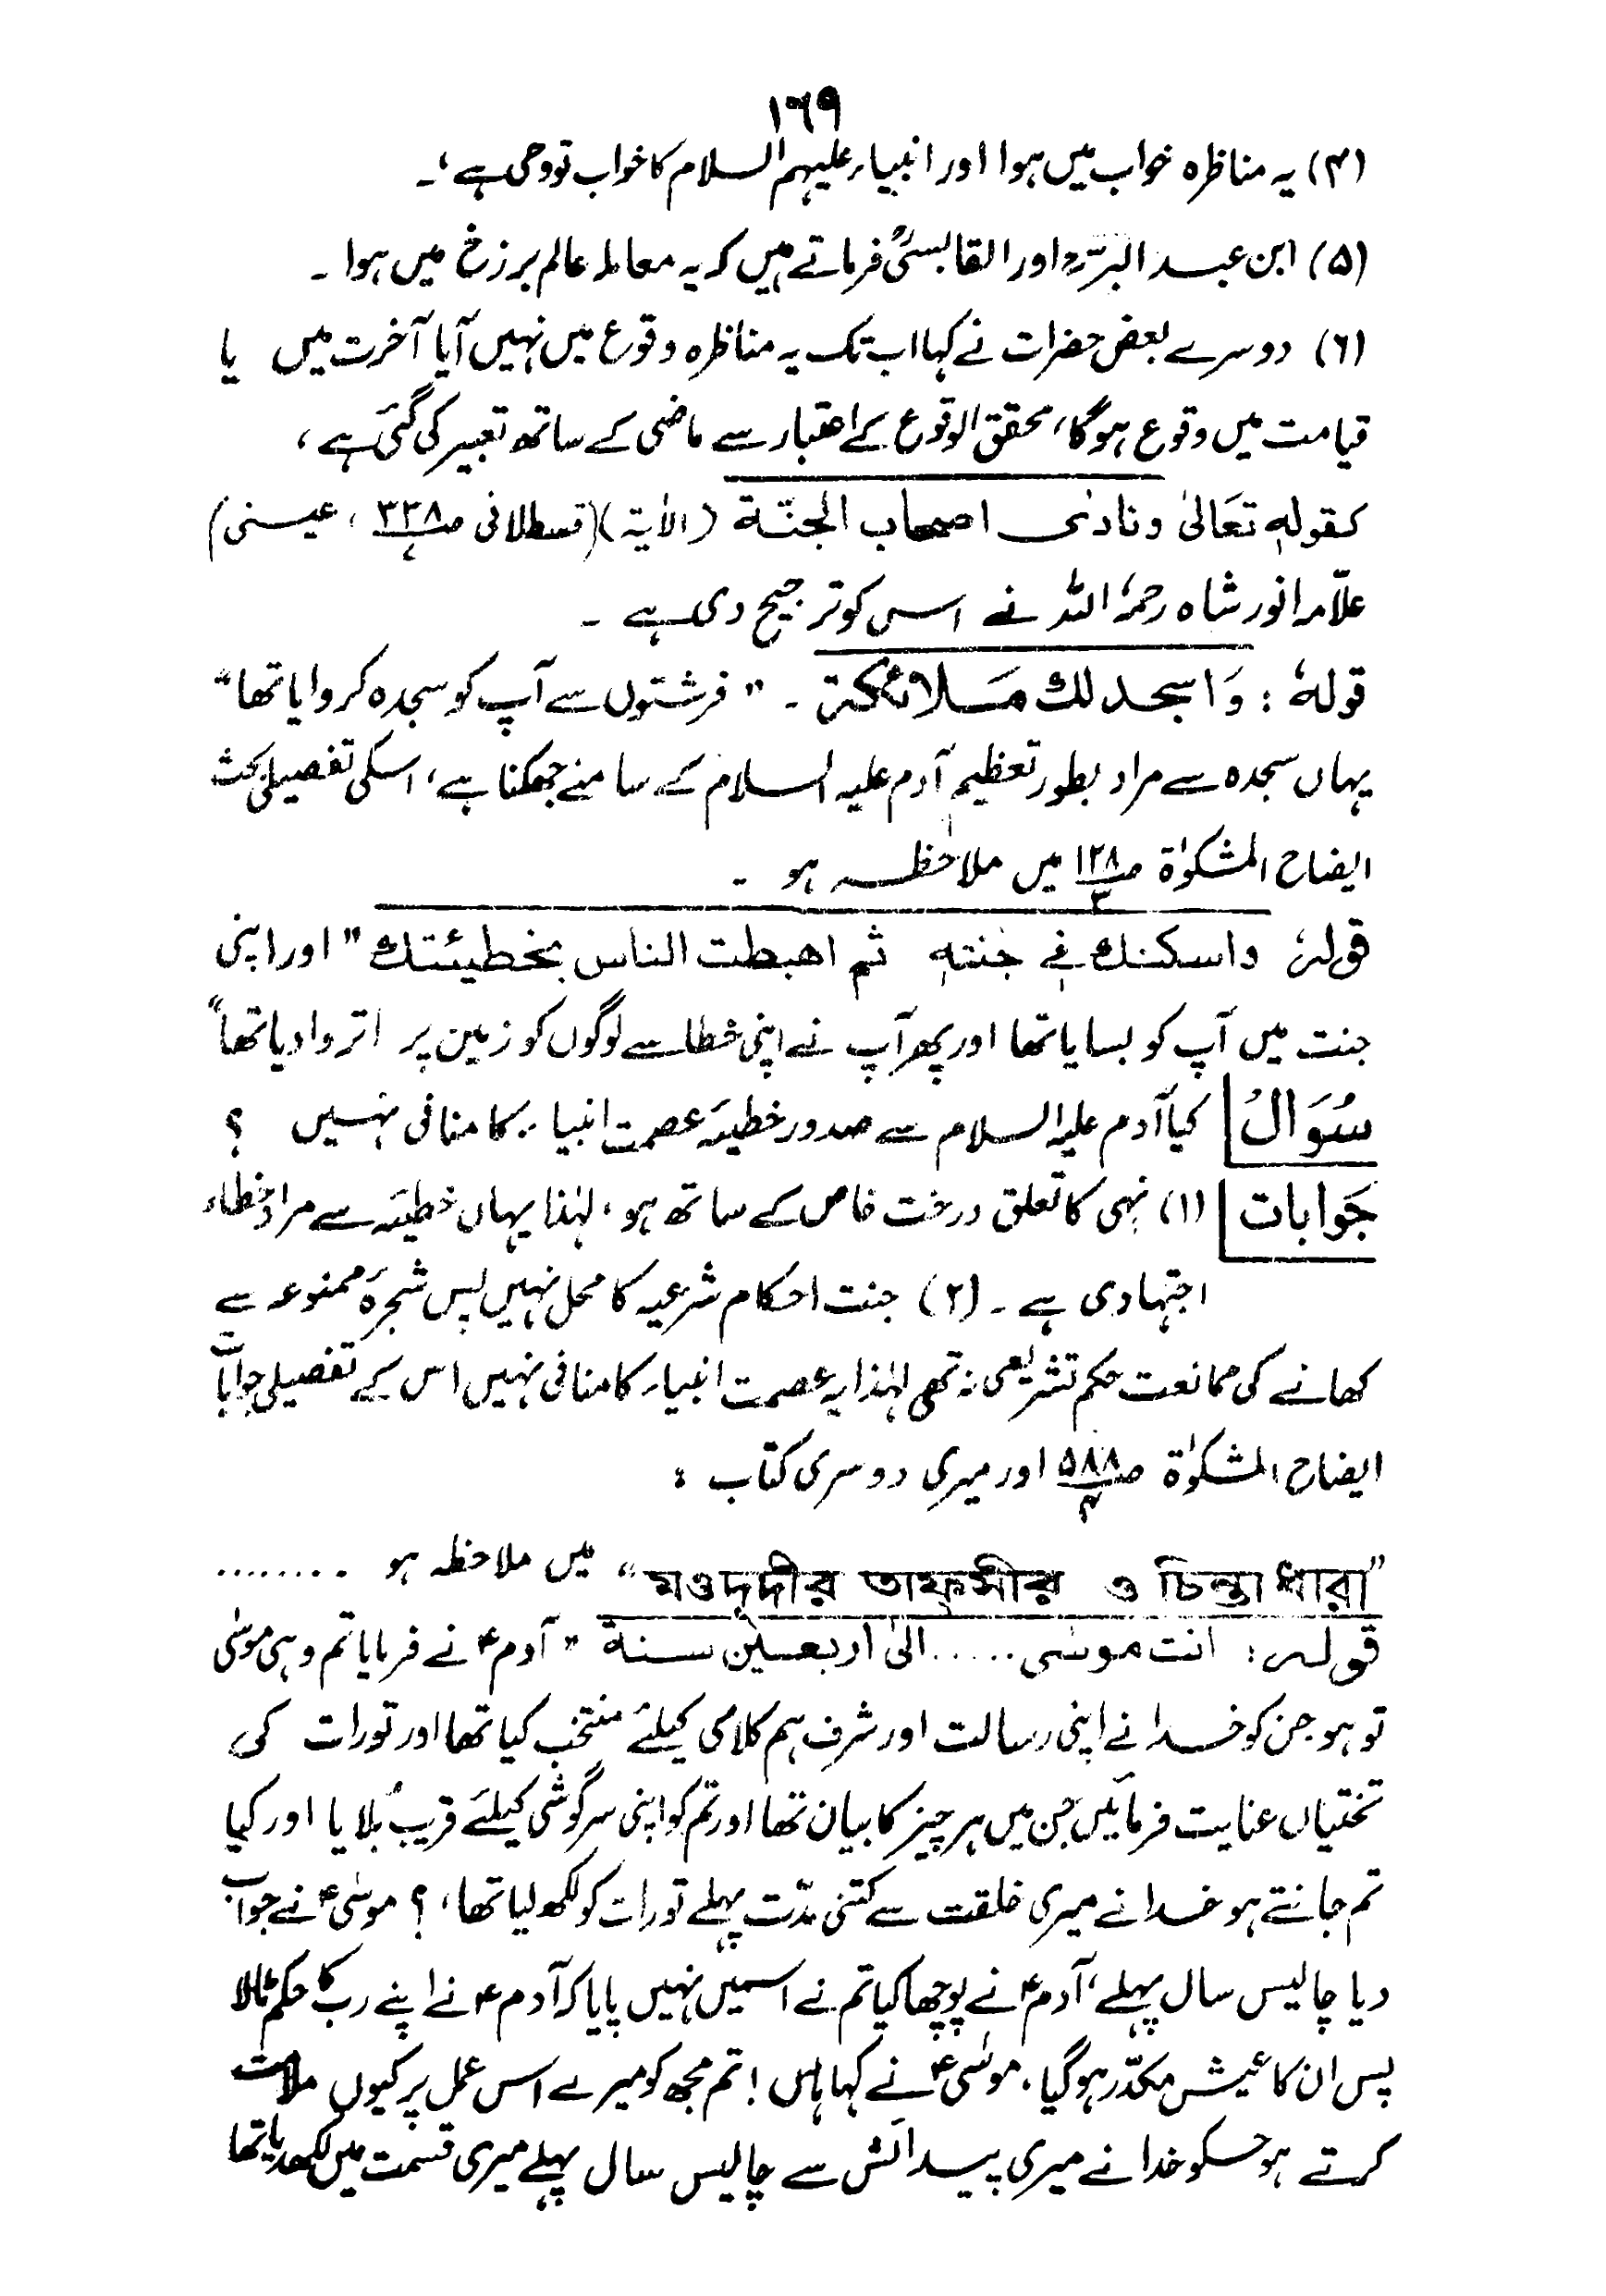 ۱۶۹
(۴) یہ مناظرہ خواب میں ہوا اور انبیاء علیہم السلام کا خواب تو وحی ہے ،۔
(۵) ابن عبد البرؒ اور القابسیؒ فرماتے ہیں کہ یہ معاملہ عالم برزخ میں ہوا ۔
(۶) دوسرے بعض حضرات نے کہا اب تک یہ مناظرہ وقوع میں نہیں آیا آخرت میں یا
قیامت میں وقوع ہوگا ، محقق الوقوع کے اعتبار سے ماضی کے ساتھ تعبیر کی گئی ہے ،
کقولہٖ تَعَالیٰ ونادٰی اصحاب الجنّۃ (الاٰیۃ) (قسطلانی صـ۳۳۸ ، عینی)
علّامہ انور شاہ رحمہُ اللہ نے اسی کو ترجیح دی ہے ۔
قولہٗ : وَاسجد لك مَلائکتہ ۔ " فرشتوں سے آپ کو سجدہ کروایا تھا "
یہاں سجدہ سے مراد بطور تعظیم آدم علیہ السلام کے سامنے جھکنا ہے ، اسکی تفصیلی بحث
ایضاح المشکوٰۃ صـ۱۲۸ میں ملاحظہ ہو ۔
قولہٗ واسکنك فی جنتہٖ ثم اھبطت الناس بخطیئتك " اور اپنی
جنت میں آپ کو بسایا تھا اور پھر آپ نے اپنی خطا سے لوگوں کو زمین پر اتروا دیا تھا "
سُوَالُ کیا آدم علیہ السلام سے صدور خطیئہ عصمت انبیاء کا منافی نہیں ؟
جَوابات (۱) نہی کا تعلق درخت خاص کے ساتھ ہو ، لہٰذا یہاں خطیئہ سے مراد خطاء
اجتہادی ہے ۔ (۲) جنت احکام شرعیہ کا محل نہیں پس شجرۂ ممنوعہ سے
کھانے کی ممانعت حکم تشریعی نہ تھی لہٰذا یہ عصمت انبیاء کا منافی نہیں اس کے تفصیلی جوابات
ایضاح المشکوٰۃ صـ۵۸۸/۴ اور میری دوسری کتاب :
"মওদূদীর তাফসীর ও চিন্তাধারা" میں ملاحظہ ہو ........
قولہ : انت موسٰی ..... الیٰ اربعین سنۃ " آدم ؑ نے فرمایا تم وہی موسٰی
تو ہو جن کو خدا نے اپنی رسالت اور شرف ہم کلامی کیلئے منتخب کیا تھا اور تورات کی
تختیاں عنایت فرمائیں جن میں ہر چیز کا بیان تھا اور تم کو اپنی سرگوشی کیلئے قریب بُلایا اور کیا
تم جانتے ہو خدا نے میری خلقت سے کتنی مدّت پہلے تورات کو لکھ لیا تھا ، ؟ موسٰی ؑ نے جواب
دیا چالیس سال پہلے ، آدم ؑ نے پوچھا کیا تم نے اسمیں نہیں پایا کہ آدم ؑ نے اپنے رب کا حکم ٹالا
پس ان کا عیش مکدّر ہوگیا ، موسٰی ؑ نے کہا ہاں ! تم مجھ کو میرے اس عمل پر کیوں ملامت
کرتے ہو جسکو خدا نے میری پیدائش سے چالیس سال پہلے میری قسمت میں لکھدیا تھا